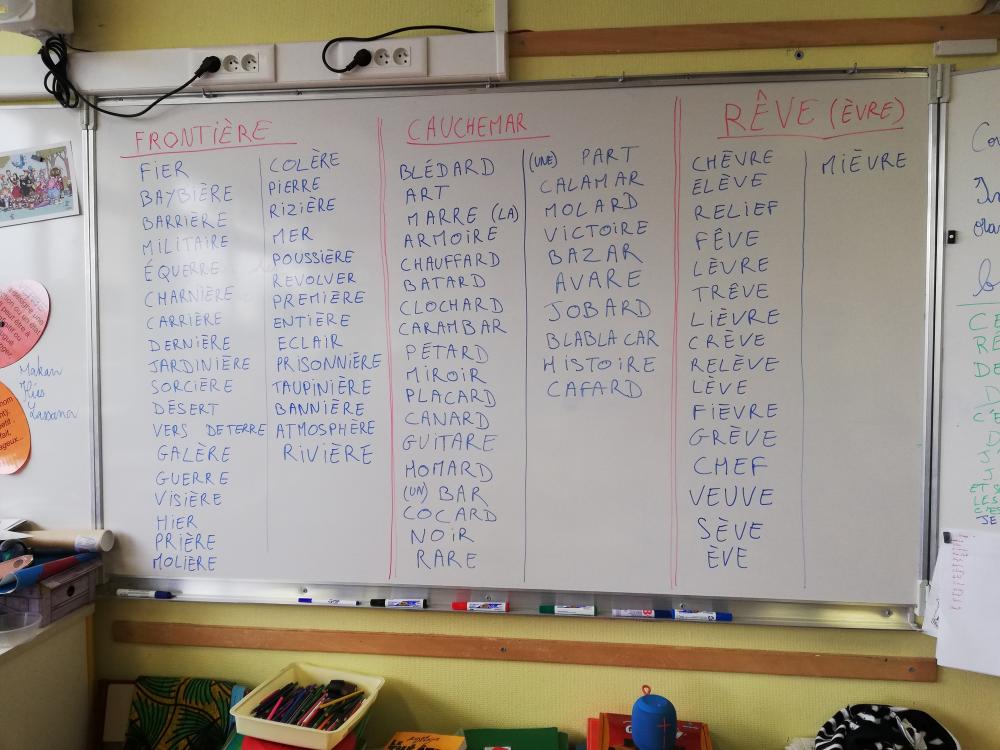 FRONTIÈRE
FIER
BAYBIÈRE
BARRIÈRE
MILITAIRE
ÉQUERRE
CHARNIÈRE
CARRIÈRE
DERNIÈRE
JARDINIÈRE
SORCIÈRE
DÉSERT
VERS DETERRE
GALÈRE
GUERRE
VISIÈRE
HIER
PRIÈRE
MOLIÈRE
COLÈRE
PIERRE
RIZIÈRE
MER
POUSSIÈRE
REVOLVER
PREMIÈRE
ENTIÈRE
ECLAIR
PRISONNIÈRE
TAUPINIÈRE
BANNIÈRE
ATMOSPHÈRE
RIVIÈRE
CAUCHEMAR
BLÉDARD
ART
MARRE (LA)
ARMOIRE
CHAUFFARD
BATARD
CLOCHARD
CARAMBAR
PÉTARD
MIROIR
PLACARD
CANARD
GUITARE
HOMARD
(UN) BAR
COCARD
NOIR
RARE
(UNE) PART
CALAMAR
MOLARD
VICTOIRE
BAZAR
AVARE
JOBARD
BLABLACAR
HISTOIRE
CAFARD
RÊVE (ÈVRE)
CHÈVRE
ÉLÈVE
RELIEF
FÊVE
LÈVRE
TRÊVE
LIÈVRE
CRÈVE
RELÈVE
LÈVE
FIÈVRE
GRÈVE
CHEF
VEUVE
SÈVE
ÈVE
MIÈVRE
Makan
Lassana